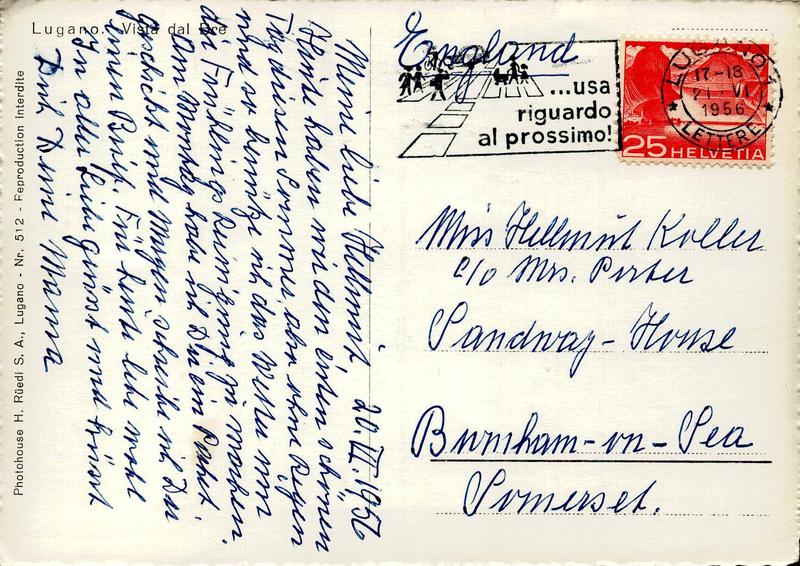 Lugano. Vista dal Bre
Photohouse H. Rüedi S. A., Lugano - Nr. 512 - Reproduction Interdite
Meine liebe Hellmut 20.VI.1956
Heute haben wir den ersten schönen
Tag diesen Sommer, aber ohne Regen
und so benütze ich das Wetter um
die Frühlingsreinigung zu machen.
Am Montag habe ich Dir ein Paket
geschickt und Morgen schreibe ich Dir
einen Brief. Für heute lebe wohl
In aller Liebe grüsst und küsst
Dich Deine Mama
England
...usa
riguardo
al prossimo!
LUGANO 1
17-18
21. VI.
1956
LETTERE
25 HELVETIA
Miss Hellmut Koller
c/o Mrs. Porter
Sandway-House
Burnham-on-Sea
Somerset.